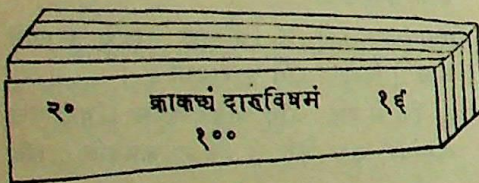 २० क्राकच्यं दारुविषमं १६
१००